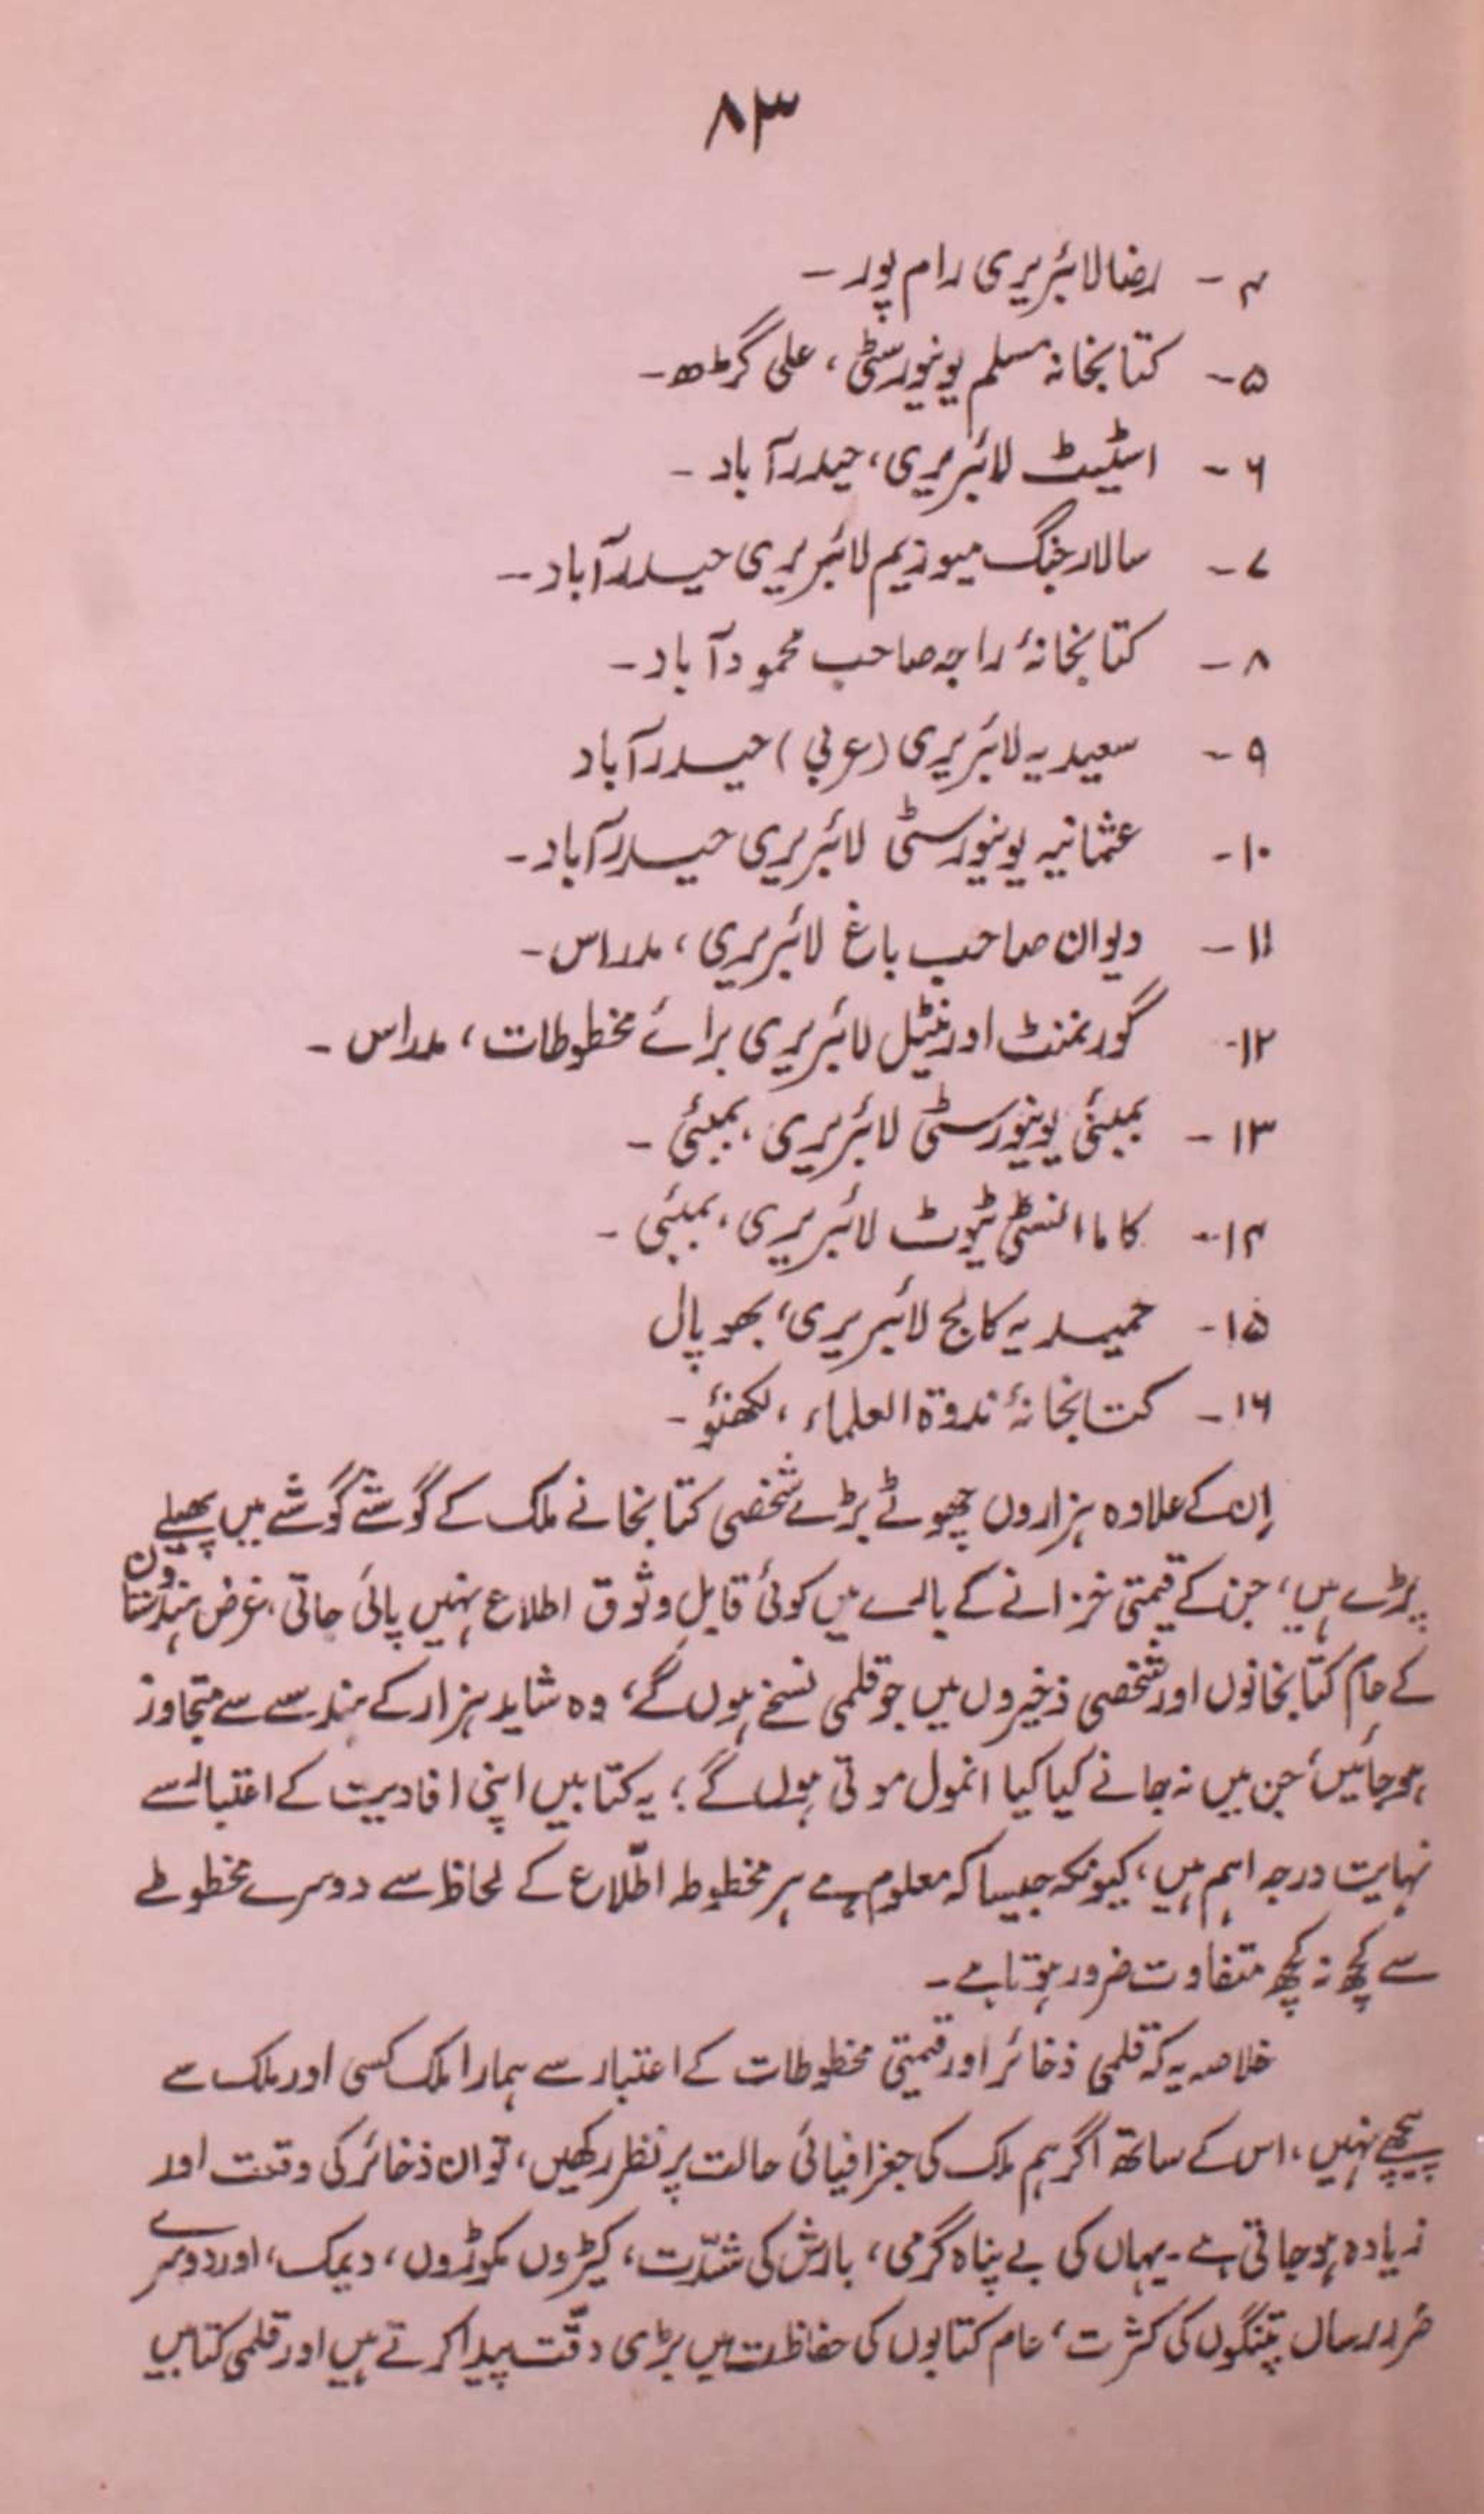 ۸۳
۴ - رضا لائبریری رام پور -
۵ - کتابخانہ مسلم یونیورسٹی، علی گڑھ -
۶ - اسٹیٹ لائبریری، حیدرآباد -
۷ - سالار جنگ میوزیم لائبریری حیدرآباد -
۸ - کتابخانۂ راجہ صاحب محمودآباد -
۹ - سعیدیہ لائبریری (عربی) حیدرآباد
۱۰ - عثمانیہ یونیورسٹی لائبریری حیدرآباد -
۱۱ - دیوان صاحب باغ لائبریری، مدراس -
۱۲ - گورنمنٹ اورینٹیل لائبریری برائے مخطوطات، مدراس -
۱۳ - بمبئی یونیورسٹی لائبریری، بمبئی -
۱۴ - کاما انسٹی ٹیوٹ لائبریری، بمبئی -
۱۵ - حمیدیہ کالج لائبریری، بھوپال
۱۶ - کتابخانۂ ندوۃ العلماء، لکھنؤ -
اِن کے علاوہ ہزاروں چھوٹے بڑے شخصی کتابخانے ملک کے گوشے گوشے میں پھیلے
پڑے ہیں، جن کے قیمتی خزانے کے بارے میں کوئی قابلِ وثوق اطلاع نہیں پائی جاتی، غرض ہندُستان
کے عام کتابخانوں اور شخصی ذخیروں میں جو قلمی نسخے ہوں گے، وہ شاید ہزار کے ہندسے سے متجاوز
ہوجائیں، جن میں نہ جانے کیا کیا انمول موتی ہوں گے؛ یہ کتابیں اپنی افادیت کے اعتبار سے
نہایت درجہ اہم ہیں، کیونکہ جیسا کہ معلوم ہے ہر مخطوطہ اطّلاع کے لحاظ سے دوسرے مخطوطے
سے کچھ نہ کچھ متفاوت ضرور ہوتا ہے -
خلاصہ یہ کہ قلمی ذخائر اور قیمتی مخطوطات کے اعتبار سے ہمارا ملک کسی اور ملک سے
پیچھے نہیں، اس کے ساتھ اگر ہم ملک کی جغرافیائی حالت پر نظر رکھیں، تو ان ذخائر کی وقعت اور
زیادہ ہوجاتی ہے - یہاں کی بے پناہ گرمی، بارش کی شدّت، کیڑوں مکوڑوں، دیمک، اور دوسرے
ضرر رساں پتنگوں کی کثرت، عام کتابوں کی حفاظت میں بڑی دقّت پیدا کرتے ہیں اور قلمی کتابیں